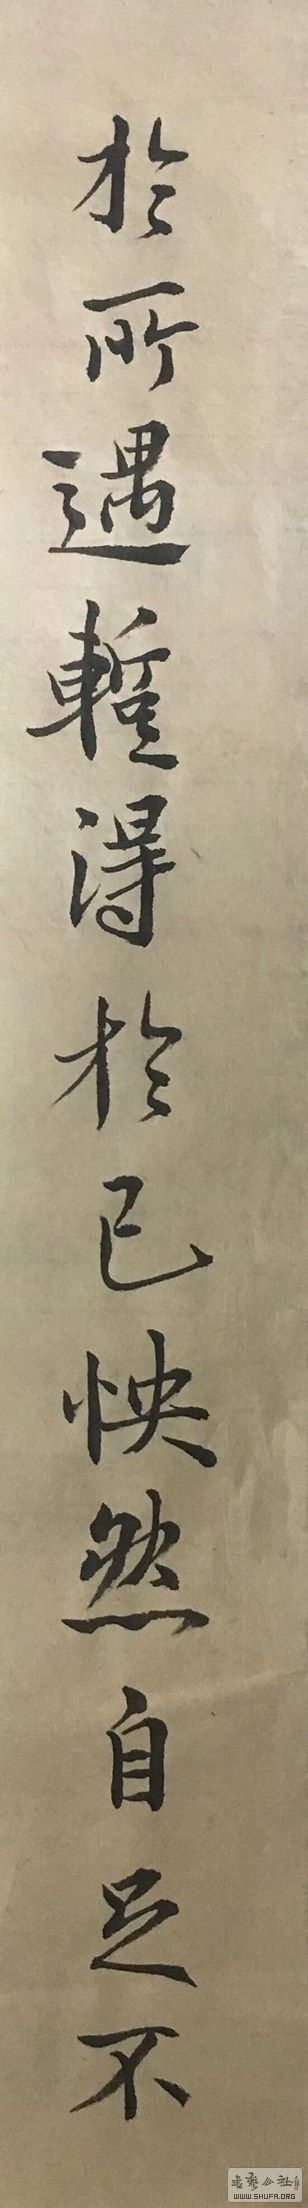 於所遇蹔得於己怏然自足不
書藝公社
WWW.SHUFA.ORG